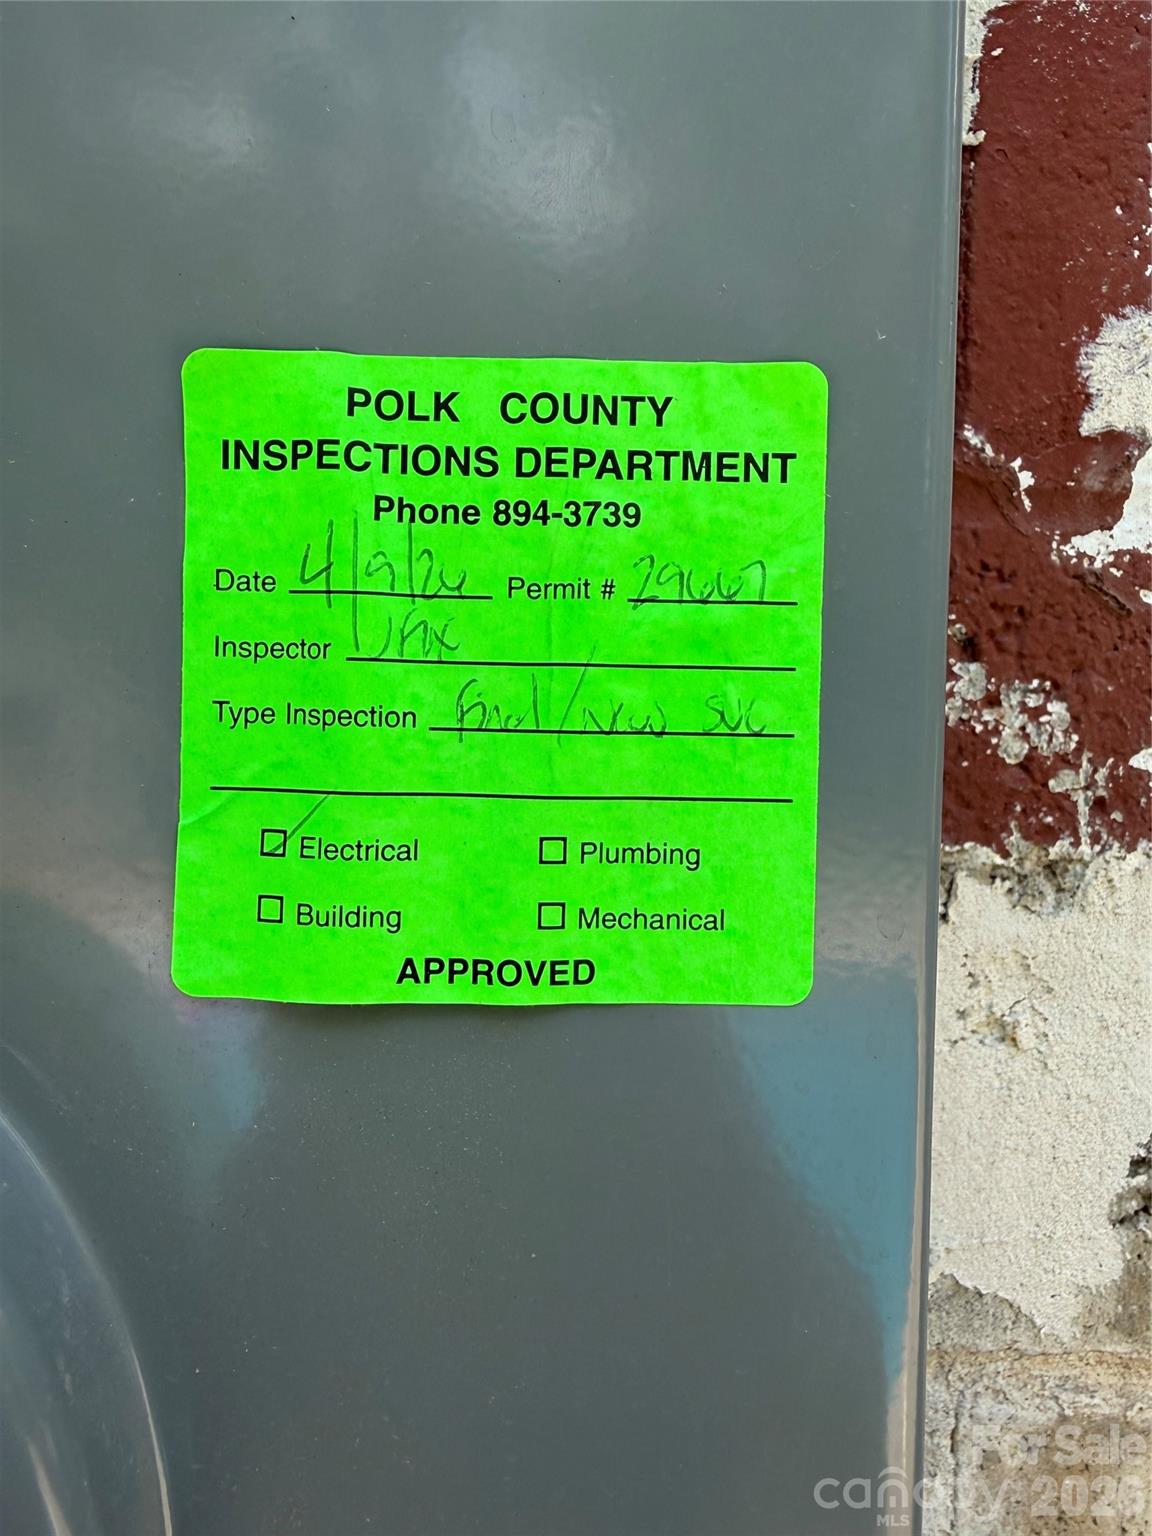 POLK COUNTY
INSPECTIONS DEPARTMENT
Phone 894-3739
Date 4/9/26 Permit # 29667
Inspector
Type Inspection Final / New SVC
Electrical Plumbing
Building Mechanical
APPROVED
For Sale
canopy 2026
MLS